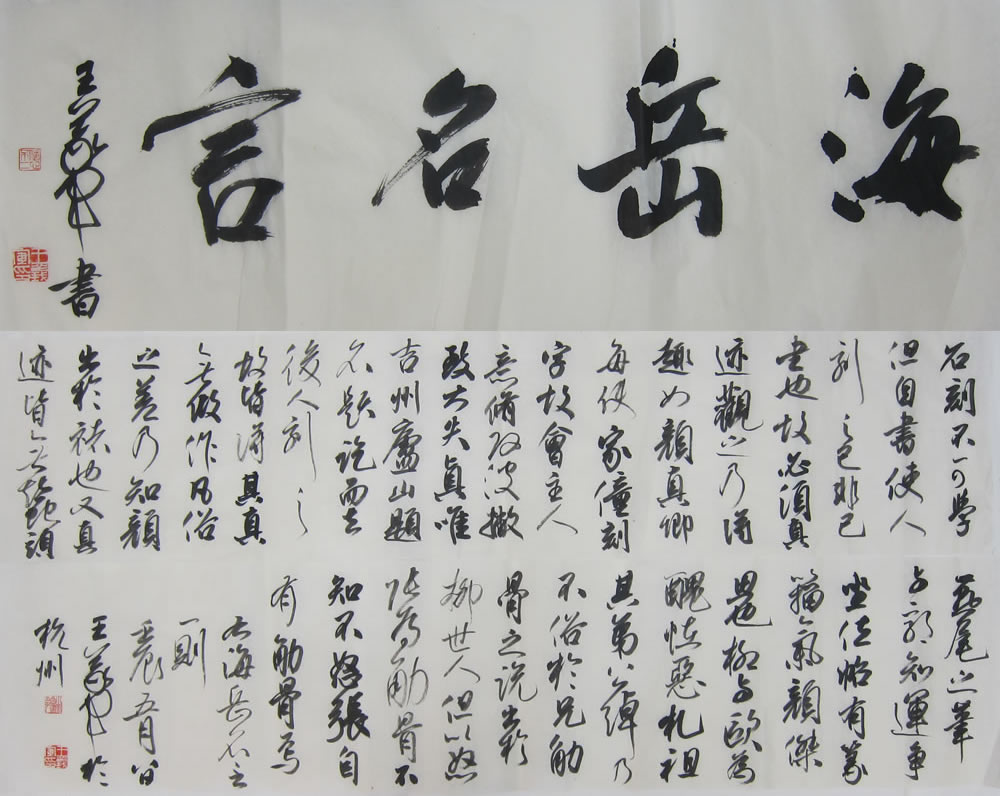 海岳名言
王義軍書
石刻不可學
但自書使人
刻之已非己
書也故必須真
迹觀之乃得
趣如顏真卿
每使家僮刻
字故會主人
意脩改波撇
致大失真唯
吉州廬山題
名題訖而去
後人刻之
故皆得其真
無做作凡俗
之差乃知顏
出於褚也又真
迹皆無蠶頭
燕尾之筆
与郭知運争
坐位帖有篆
籀氣顏傑
思也柳与歐為
醜怪惡札祖
其弟公綽乃
不俗於兄筋
骨之説出於
柳世人但以怒
張為筋骨不
知不怒張自
有筋骨焉
右海岳名言
一則
壬辰五月
王義軍於
杭州